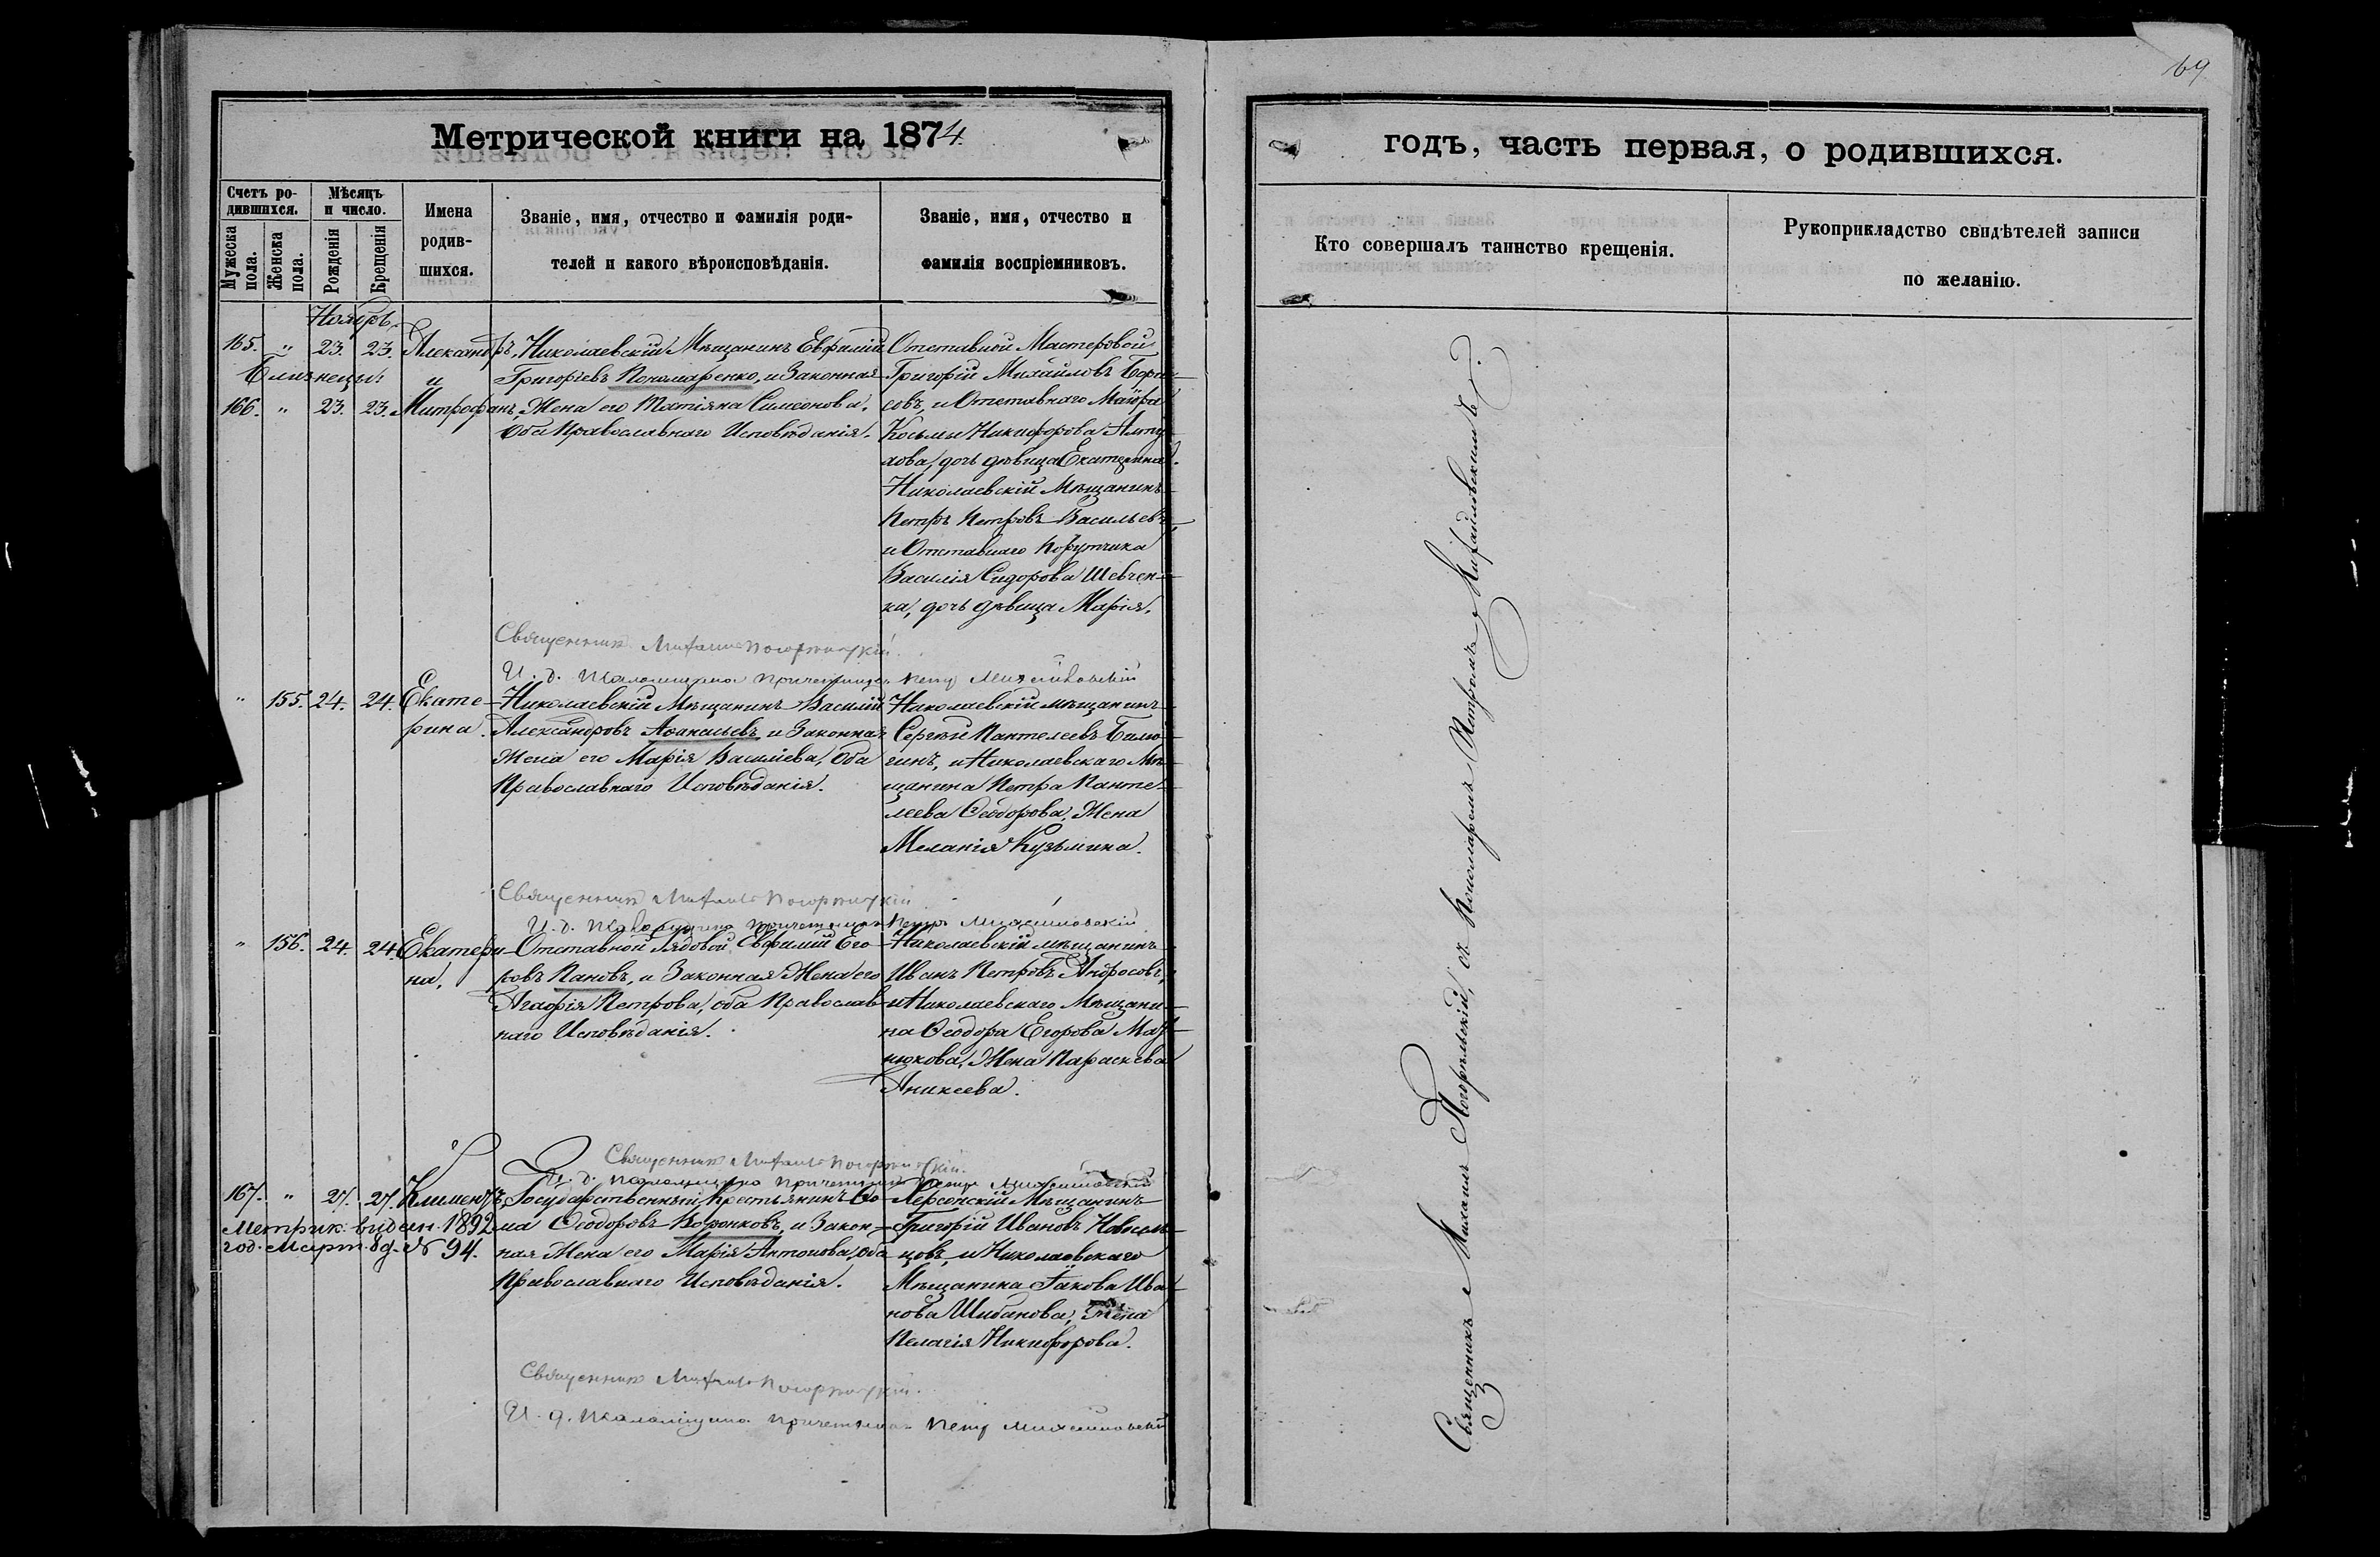 69
Метрической книги на 1874.
годъ, часть первая, о родившихся.
Счетъ ро-
дившихся.
Мѣсяцъ
и число.
Мужеска
пола.
Женска
пола.
Рожденія
Крещенія
Имена
родив-
шихся.
Званіе, имя, отчество и фамилія роди-
телей и какого вѣроисповѣданія.
Званіе, имя, отчество и
фамилія воспріемниковъ.
Кто совершалъ таинство крещенія.
Рукоприкладство свидѣтелей записи
по желанію.
Ноябрь
165. " 23. 23. Александръ,
Близнецы: и
166. " 23. 23. Митрофанъ,
Николаевскій Мѣщанинъ Евфимій
Григорьевъ Пономаренко, и Законная
Жена его Татіяна Симеонова,
Оба Православнаго Исповѣданія.
Отставной Мастеровой
Григорій Михайловъ Бори-
совъ, и Отставнаго Маіора
Косьмы Никифорова
дочь дѣвица Екатерина.
Николаевскій Мѣщанинъ
Петръ Петровъ Васильевъ,
и Отставнаго Порутчика
Василія Сидорова Шевчен-
ка, дочь дѣвица Марія.
Священникъ Михаилъ
И. д. Псаломщика Причетникъ Петръ Михайловскій
" 155. 24. 24. Екате-
рина.
Николаевскій Мѣщанинъ Василій
Александровъ Аѳанасьевъ и Законная
Жена его Марія Василіева, Оба
Православнаго Исповѣданія.
Николаевскій мѣщанинъ
Сергѣй Пантелеевъ
и Николаевскаго Мѣ-
щанина Петра Панте-
леева Ѳеодорова, Жена
Меланія Кузьмина.
Священникъ Михаилъ
И. д. Псаломщика Причетникъ Петръ Михайловскій
" 156. 24. 24. Екатери-
на.
Отставной Рядовой Евфимій Его-
ровъ Пановъ, и Законная Жена его
Агафія Петрова, оба Православ-
наго Исповѣданія.
Николаевскій мѣщанинъ
Иванъ Петровъ Андросовъ,
и Николаевскаго Мѣщани-
на Ѳеодора Егорова
Жена Параскева
Аникеева.
Священникъ Михаилъ
И. д. Псаломщика Причетникъ Петръ Михайловскій
167. " 27. 27. Климентъ,
Метрик. видан. 1892
год. март. 8 д. № 94.
Государственный Крестьянинъ Ѳо-
ма Ѳеодоровъ Воронковъ, и Закон-
ная Жена его Марія Антонова, оба
Православнаго Исповѣданія.
Херсонскій Мѣщанинъ
Григорій Ивановъ
и Николаевскаго
Мѣщанина Іакова Ива-
нова Шибанова, Жена
Пелагія Никифорова.
Священникъ Михаилъ
И. д. Псаломщика Причетникъ Петръ Михайловскій
Священникъ Михаилъ Погорѣльскій, съ Пономаремъ Петромъ Михайловскимъ.